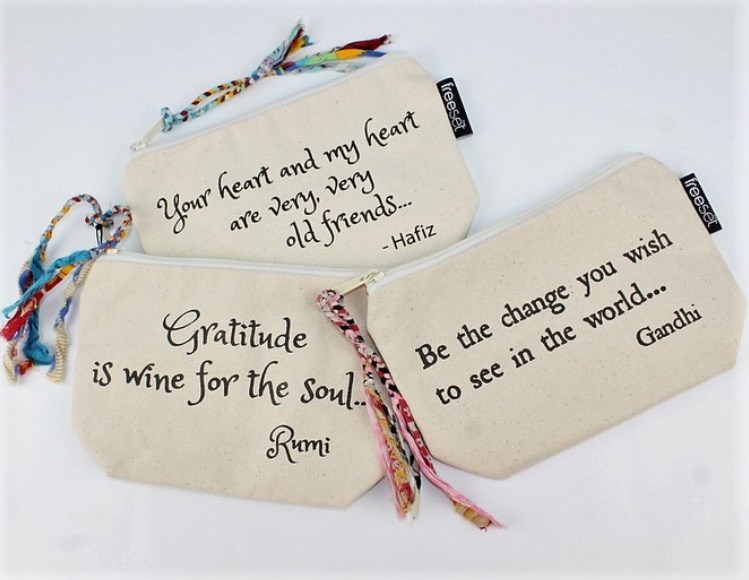 freeset
Your heart and my heart
are very, very
old friends...
- Hafiz
freeset
Be the change you wish
to see in the world...
Gandhi
Gratitude
is wine for the soul..
Rumi